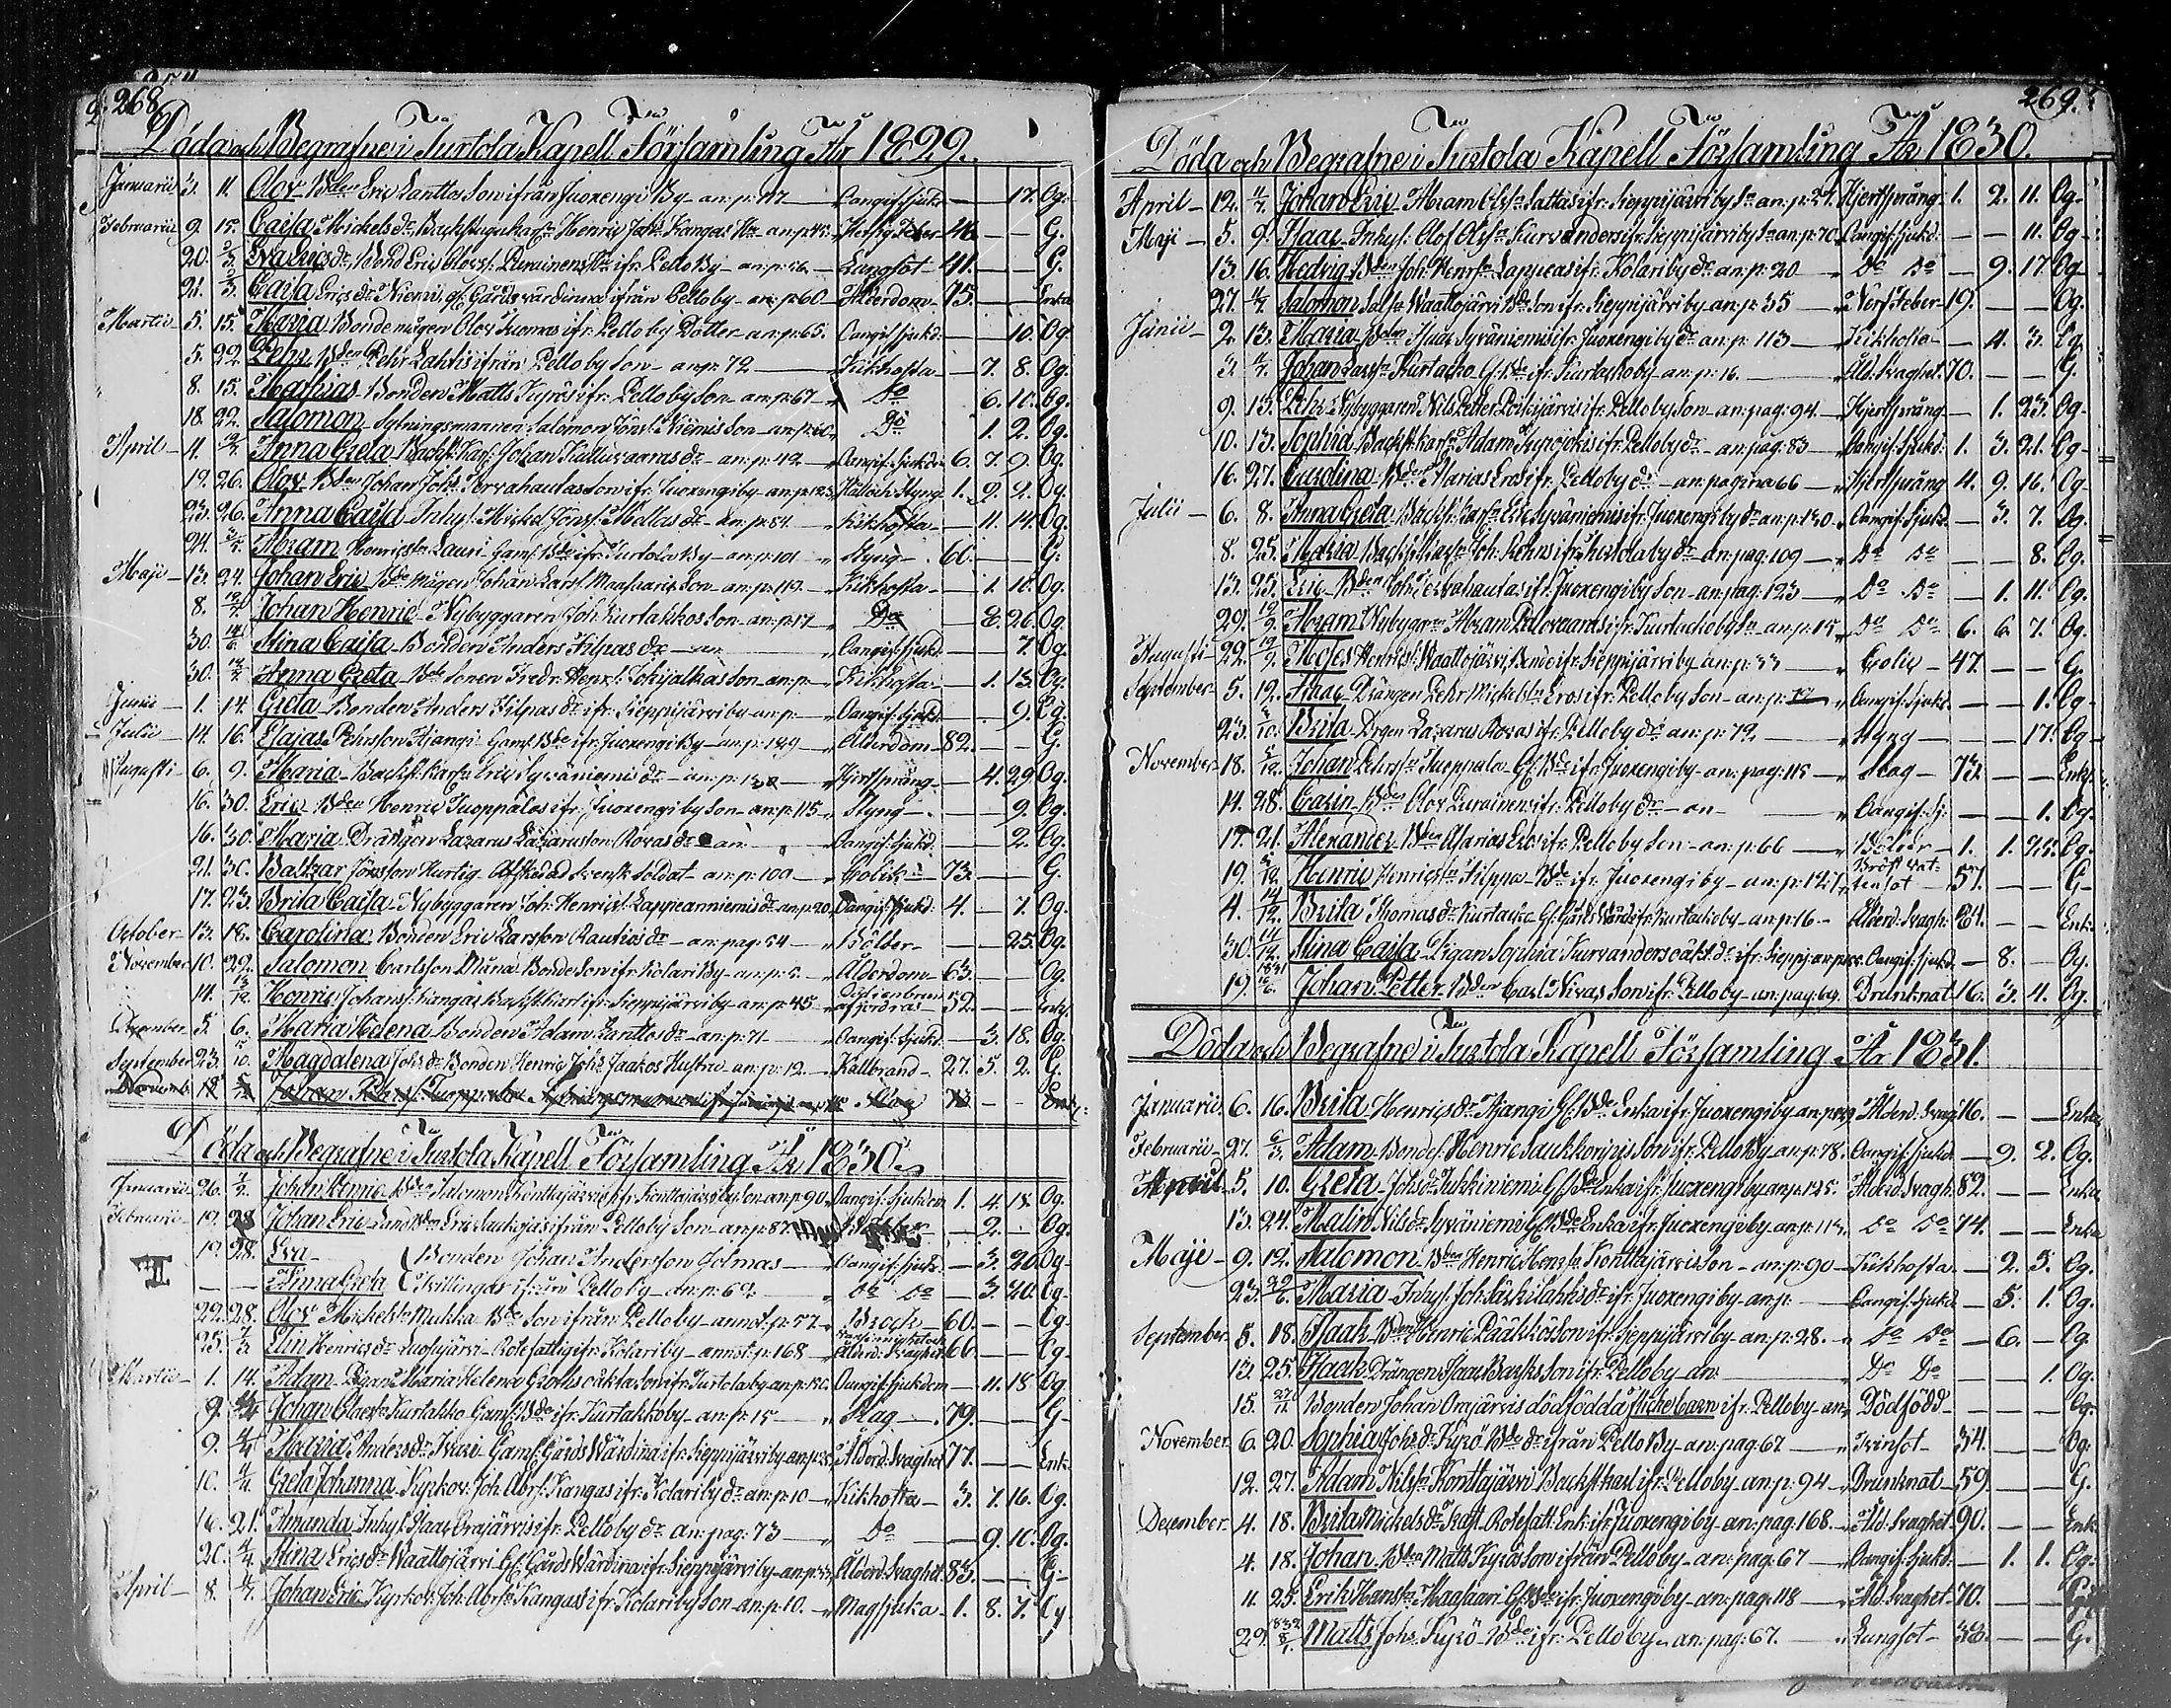 268.
Döda och Begrafne i Turtola Kapell Församling År 1829.
Januarii 3. 11. Olov Bden Eric Lanttos Son ifrån Juoxengi By an: p: 117 Oangif. sjukd. — — 17. Og.
Februarii 9. 15. Caisa Mickelsdr Henric Joh: Kangas Hu an: p: 45 46. — — G.
20. 2/3 Eva Ericsdr Bond. Eric Olovss. Purainens Hu ifr. Pello By an: p: 56 Lungsot 41. — — G.
21. 2/3 Caisa Ericsdr Niemi gl. Gårds värdinna ifrån Pelloby an: p: 60 Ålderdom 75. — — Enka
Martii 5. 15. Maria Bondemågen Olov Tuomas ifr. Pelloby Dotter an: p: 65. Oangif. sjukd. — — 10. Og.
5. 22. Pehr Bden Pehr Lahtis ifrån Pelloby Son an: p: 72 Kikhosta — 7. 8. Og.
8. 15. Mathias Bonden Matts Kyrös ifr. Pelloby Son an: p: 67 Do 6. 10. Og.
18. 22. Salomon Salomon Jönss. Niemis Son an: p: 60 Do 1. 2. Og.
April 4. Anna Greta Backst. Karl. Johan Kallivaaras dr an: p: 42 Oangif. sjukd. 6. 7. 9. Og.
19. 26. Olov Bden Johan Joh: Tervahautas Son ifr. Juoxengiby an: p: 123 Håll och Styng 1. 2. 2. Og.
23. 26. Anna Caisa Inhys. Mickel Jönss. Mellas dr an: p: 54 Kikhosta — 11. 14. Og.
24. Abram Henricsson Lauri Gaml. Bde ifr. Turtola By an: p: 101 Styng 60. — — G.
Maji 13. 24. Johan Eric Bde mågen Johan Larss. Maasvaris Son an: p: 119. Kikhosta — 1. 10. Og.
8. Johan Henric Nybyggaren Joh: Kurtakkos Son an: p: 17 Do — 8. 26. Og.
30. 14/6 Stina Caisa Bonden Anders Filpas dr an Oangif. sjukd. — — 7. Og.
30. Anna Greta Bde Sonen Fredr. Henr. Lohijalkas Son an: p: Kikhosta — 1. 13. Og.
Junii 1. 14. Greta Bonden Anders Filpas dr ifr. Sieppijärviby an: p: Oangif. sjukd. — — 9. Og.
Julii 14. 16. Esajas Pehrsson Stjangi Gaml. Bde ifr. Juoxengi By an: p: 129 Ålderdom 82. — — G.
Augusti 6. 9. Maria Backst. karln Eric Syväniemis dr an: p: 130 Hjertsprång — 4. 29 Og.
16. 30. Eric Bden Henric Tuoppalas ifr. Juoxengiby Son an: p: 115 Styng — — 9. Og.
16. 30. Maria Drängen Lazarus Lazarusson Rovas dr an Oangif. sjukd. — — 2. Og.
21. 30. Baltzar Jönsson Hurtig Afskied Svensk Soldat an: p: 100 Colik 73. — — G.
17. 23. Brita Caisa Nybyggaren Joh: Henricss. Lappeanniemis dr an: p: 20. Oangif. sjukd. 4. — 7. Og.
October 13. 18. Carolina Bonden Eric Larsson Rautios dr an: pag: 54 Bölder — — 25. Og.
November 10. 22. Salomon Carlsson Muna Bonde Son ifr. Kolari By an: p: 5. Ålderdom 63. — — Og.
14. 13/12. Henric Johanss. Kangas Backst.karl ifr. Sieppijärviby an: p: 45 52. — — Enkl.
December 5. 6. Maria Helena Bonden Adam Lanttos dr an: p: 71 Oangif. sjukd. — 3. 18. Og.
September 23. Magdalena Johsdr Bonden Henric Johs Jaakos Hustru an: p: 12. Kallbrand 27. 5. 2. G.
Döda och Begrafne i Turtola Kapell Församling År 1830.
Januarii 26. 7/2. Johan Henric Bden Salomon Konttajärvis ifr. Konttajärviby Son an: p: 90 Oangif. sjukdom 1. 4. 18. Og.
Februarii 19. 28 Johan Eric Eric Saukojas ifrån Pelloby Son an: p: 87. — 2. — Og.
19. 28. Eva { Bonden Johan Andersson Jolmas Oangif. sjukd. — 3. 20. Og.
— — Anna Greta { Tvillingar ifrån Pelloby an: p: 62 Do Do — 3. 20. Og.
22. 28. Olov Mickelsson Mukka Bde Son ifrån Pelloby annot. p: 77 Brock 60. — — Og.
25. 7/3 Elin Henricsdr Luosujärvi Rotefattig ifr. Kolariby annot. p: 168 Ålderd. Svaghet 66. — — Og.
Martii 1. 14. Adam Pigan Maria Helena Groths oäkta Son ifr. Turtolaby an: p: 150. Oangif. sjukdom — 11. 18 Og.
9. 4/4 Johan Olaesson Kurtakko Gaml. Bde ifr. Kurtakkoby an: p: 15 Slag 79. — — G.
9. 4/4 Maria Andersdr Kari Gaml. Gårds Wärdina ifr. Sieppijärviby Ålderd. Svaghet 77. — — Enk.
10. Greta Johanna Kyrkov. Joh. Abrs. Kangas ifr. Kolariby dr an: p: 10 Kikhosta 3. 7. 16. Og.
16. 21. Amanda Inhys. Isaac Orajärvis ifr. Pelloby dr an: pag: 73 Do — 9. 10. Og.
20. 4/4 Stina Ericsdr Waattojärvi Gl. Gårds Wärdina ifr. Sieppijärviby Ålderd. Svaghet 83. — — G.
April 8. Johan Eric Kyrkov. Joh. Abrs. Kangas ifr. Kolariby Son an: p: 10. Magsjuka 1. 8. 7. Og.
269.
Döda och Begrafne i Turtola Kapell Församling År 1830.
April 12. Johan Eric Abram Olss. Lattas ifr. Sieppijärviby Son an: p: 24. Hjertsprång 1. 2. 11. Og.
Maji 5. 9. Isaac Inhys. Olof Olss. Kurvanders ifr. Sieppijärviby Son an: p: 70 Oangif. sjukd. — — 11. Og.
13. 16. Hedvig Bden Joh: Henrss. Lappeas ifr. Kolariby dr an: p: 20 Do Do — 9. 17. Og.
27. Salomon Salss. Waattojärvi Bde Son ifr. Sieppijärviby an: p: 35 Nervfeber 19. — — Og.
Junii 2. 13. Maria Bden Isaac Syväniemis ifr. Juoxengiby dr an: p: 113 Kikhosta — 4. 3. Og.
3. Johan Larsson Kurtacko Gl. Bde ifr. Kurtackoby an: p: 16. Åld. Svaghet 70. — — G.
9. 13. Pehr Nybyggaren Nils Petter Poikijärvis ifr. Pelloby Son an: pag: 94. Hjertsprång — 1. 23. Og.
10. 13. Sophia Backst. karln Adam ifr. Pelloby dr an: pag: 83 Oangif. sjukd. 1. 3. 21. Og.
16. 27. Carolina Bden Eros ifr. Pelloby dr an: pagina 66 Hjertsprång 4. 9. 16. Og.
Julii 6. 8. Anna Greta Backst. karln Eric Syväniemis ifr. Juoxengiby dr an: p: 130 Oangif. sjukd. — 3. 7. Og.
8. 25. Maria Backst. karln Joh: Rehns ifr. Turtolaby dr an: pag: 109 Do Do — — 8. Og.
13. 25. Eric Bden Joh: Tervahautas ifr. Juoxengiby Son an: pag: 123 Do Do — 1. 11. Og.
29. Abram Nybygrn Abram Palovaaras ifr. Kurtackoby Son an: p: 15 Do Do 6. 6. 7. Og.
Augusti 22. 19/9. Moses Henricss. Waattojärvi Bonde ifr. Sieppijärviby an: p: 33 Colic 47. — — G.
September 5. 12. Isaac Drängen Pehr Mickelsson Eros ifr. Pelloby Son an: p: 72 Oangif. sjukd. — — 1. Og.
23. Brita Drgen Lazarus Rovas ifr. Pelloby dr an: p: 72 Styng — — 17. Og.
November 18. 5/12. Johan Pehrsson Tuoppala Gl. Bde ifr. Juoxengiby an: pag: 115 Slag 73. — — Enkl.
14. 28. Carin Bden Olov Purainens ifr. Pelloby dr an Oangif. Sj. — — 1. Og.
17. 21. Alexander Bden Asarias Eros ifr. Pelloby Son an: p: 66 Bölder 1. 1. 25. Og.
19. 5/12 Henric Henricsson Filppa Bde ifr. Juoxengiby an: p: 127 Bröst Vattensot 57. — — G.
4. 12/12. Brita Thomasdr Kurtacko Gl. Gårds Wärd. ifr. Kurtackoby an: p: 16. Ålderd. Svagh. 81. — — Enk.
30. Stina Caisa Pigan Sophia Kurvanders oäkt. dr ifr. Sieppij: Oangif. sjukd. — 8. — Og.
19. 1831 Johan Petter Bden Carl Nivas Son ifr. Pelloby an: pag: 69. Drunknat 16. 3. 11. Og.
Döda och Begrafne i Turtola Kapell Församling År 1831.
Januarii 6. 16. Brita Henricsdr Stjangi Gl. Bde Enka ifr. Juoxengiby Ålderd. Svag. 76. — — Enka
Februarii 27. 6/3. Adam Bondes. Henric Saukkorijvis Son ifr. Pello By an: p: 78. Oangif. sjukd. — 9. 2. Og.
April 5. 10. Greta Johsdr Tuhkiniemi Gl. Bde Enka ifr. Juoxengiby an: p: 125. Ålderd. Svagh. 82. — — Enka
13. 24. Malin Nilsdr Syväniemi Gl. Bde Enka ifr. Juoxengiby an: p: 113. Do Do 74. — — Enka
Maji 9. 12. Salomon Bden Henric Henrss. Konttajärvis Son an: p: 90 Kikhosta — 2. 3. Og.
23. 29/6. Maria Inhys. Joh: Särkilahtis dr ifr. Juoxengiby an: p: Oangif. sjukd. — 5. 1. Og.
September 5. 18. Isaak Bden Henric Pääkkös Son ifr. Sieppijärviby an: p: 28. Do Do — 6. — Og.
13. 25. Isaak Drängen Isaac Barsks Son ifr. Pelloby an: Do Do — — 1. Og.
15. Bonden Johan Orajärvis dödfödda flickebarn ifr. Pelloby an: Dödfödd — — — Og.
November 6. 20. Sophia Johsdr Kyrö Bde dr ifrån Pello By an: pag: 67 Tvinsot 34. — — Og.
12. 27. Adam Nilsson Konttajärvi Backst.karl ifr. Pelloby an: p: 94 Drunknat 59 — — G.
December 4. 18. Brita Mickelsdr Kraft Rotefatt. Enk. ifr. Juoxengiby an: pag: 168. Åld. Svaghet 90. — — Enk.
4. 18. Johan Bden Matts Kyrös Son ifrån Pelloby an: pag: 67 Oangif. sjukd. — 1. 1. Og.
11. 25. Erik Hansson Maasvari Gl. Bde ifr. Juoxengiby an: pag: 118 Åld. Svaghet 70. — —
29. 1832 8/1. Matts Johs. Kyrö Bde ifr. Pelloby an: pag: 67. Lungsot 38. — — G.